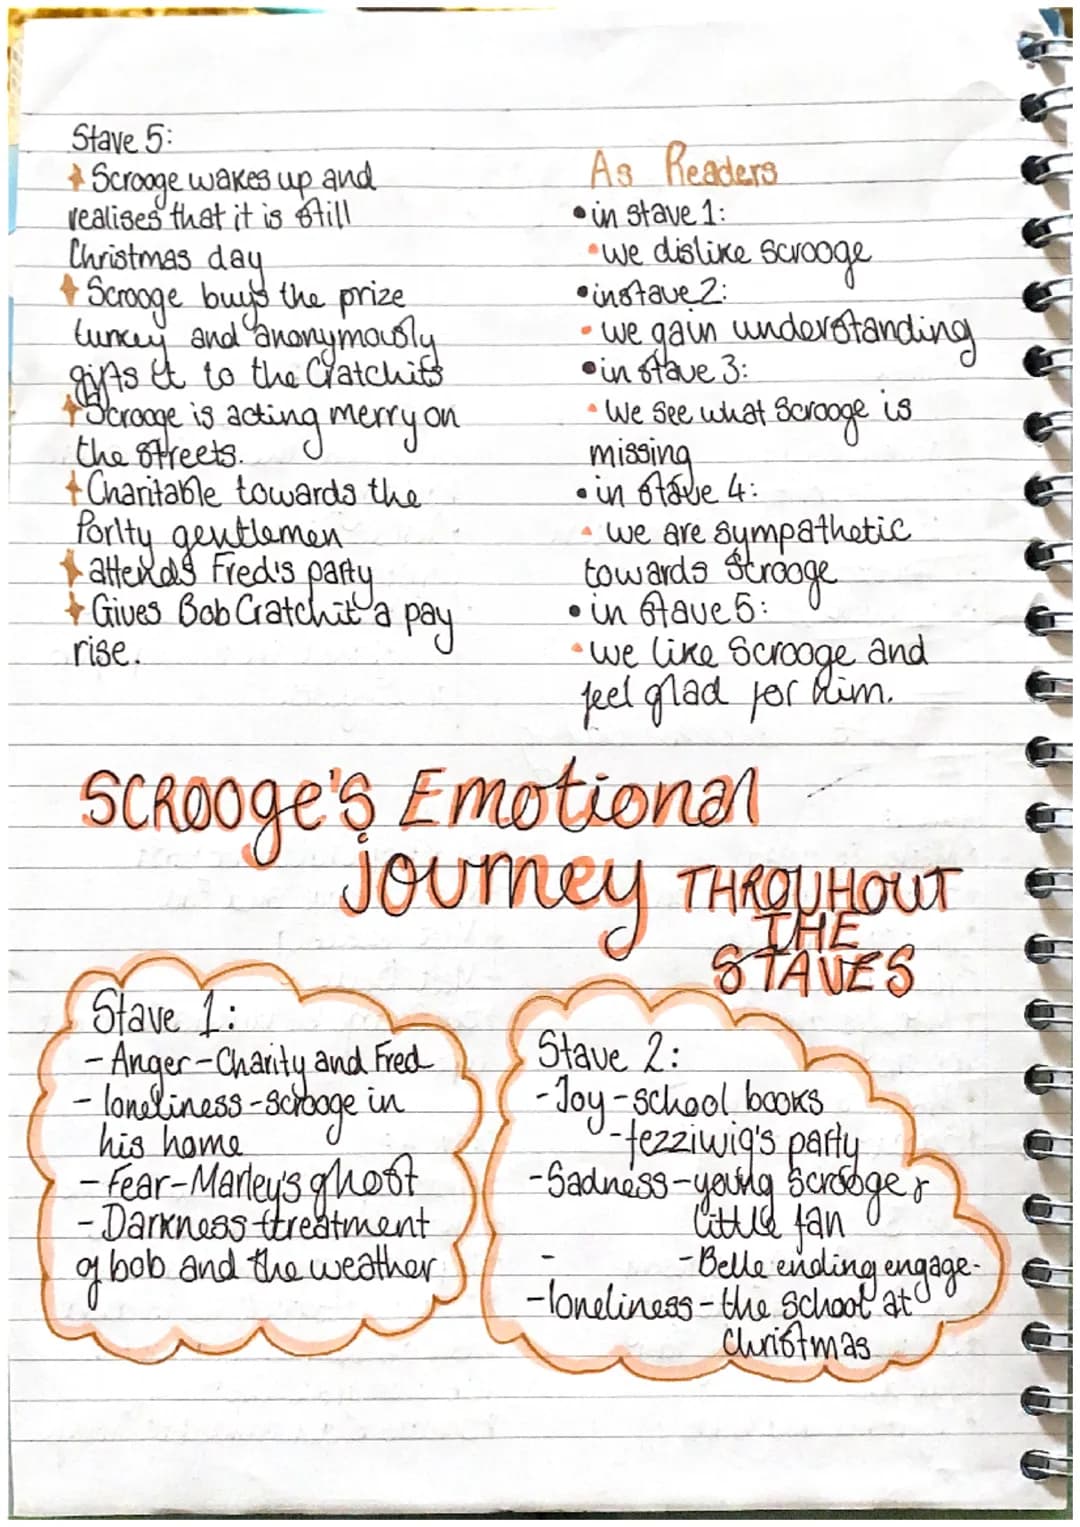 Stave 5:
Scrooge wakes up and
realises that it is still
Christmas day
Scrooge buys the prize
turkey and anonymously
gifts it to the Cratchits
Scrooge is acting merry on
the streets.
Charitable towards the
Porlty gentlemen
attends Fred's party
Gives Bob Cratchit a pay
rise.
As Readers
• in stave 1:
• we dislike Scrooge
• in stave 2:
• we gain understanding
• in stave 3:
• We see what Scrooge is
missing
• in stave 4:
• we are sympathetic
towards Scrooge
• in stave 5:
• we like Scrooge and
feel glad for him.
SCROOge's Emotional
journey THROUHOUT
THE
STAVES
Stave 1:
- Anger - Charity and Fred
- loneliness - scrooge in
his home
- Fear - Marley's ghost
- Darkness - treatment
of bob and the weather
Stave 2:
- Joy - school books
- fezziwig's party
- Sadness - young Scrooge &
little fan
- - Belle ending engage-
- loneliness - the school at
Christmas